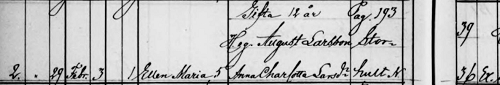 Gifta 12 år Pag. 193
Heg. August Larsson Stor- 39
2. . 29 Febr. 3 1 Ellen Maria 5 Anna Charlotta Larsdr hult N 36 Ex.